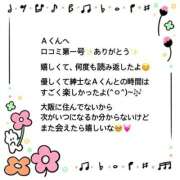 Aくんへ
口コミ第一号✨ありがとう✨
嬉しくて、何度も読み返したよ
優しくて紳士なAくんとの時間は
すごく楽しかったよ(^o^)~🎶
大阪に住んでないから
次がいつになるか分からないけど
また会えたら嬉しいな🥹💗